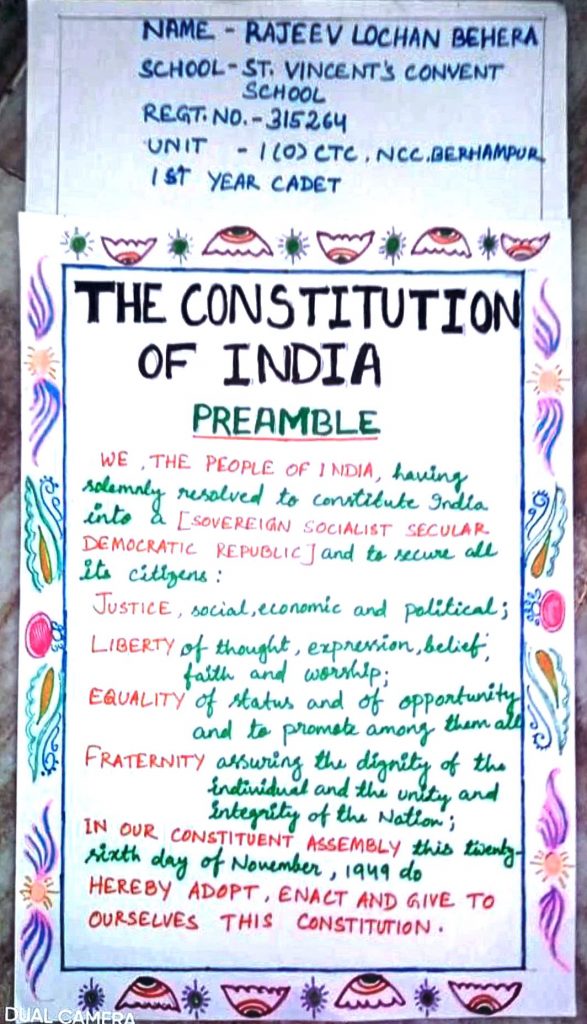 NAME - RAJEEV LOCHAN BEHERA
SCHOOL - ST. VINCENT'S CONVENT
SCHOOL
REGT. NO. - 315264
UNIT - 1(O) CTC, NCC, BERHAMPUR
1ST YEAR CADET
THE CONSTITUTION
OF INDIA
PREAMBLE
WE, THE PEOPLE OF INDIA, having
solemnly resolved to constitute India
into a [SOVEREIGN SOCIALIST SECULAR
DEMOCRATIC REPUBLIC] and to secure all
its citizens:
JUSTICE, social, economic and political;
LIBERTY of thought, expression, belief,
faith and worship;
EQUALITY of status and of opportunity
and to promote among them all
FRATERNITY assuring the dignity of the
individual and the unity and
integrity of the Nation;
IN OUR CONSTITUENT ASSEMBLY this twenty-
sixth day of November, 1949 do
HEREBY ADOPT, ENACT AND GIVE TO
OURSELVES THIS CONSTITUTION.
DUAL CAMERA